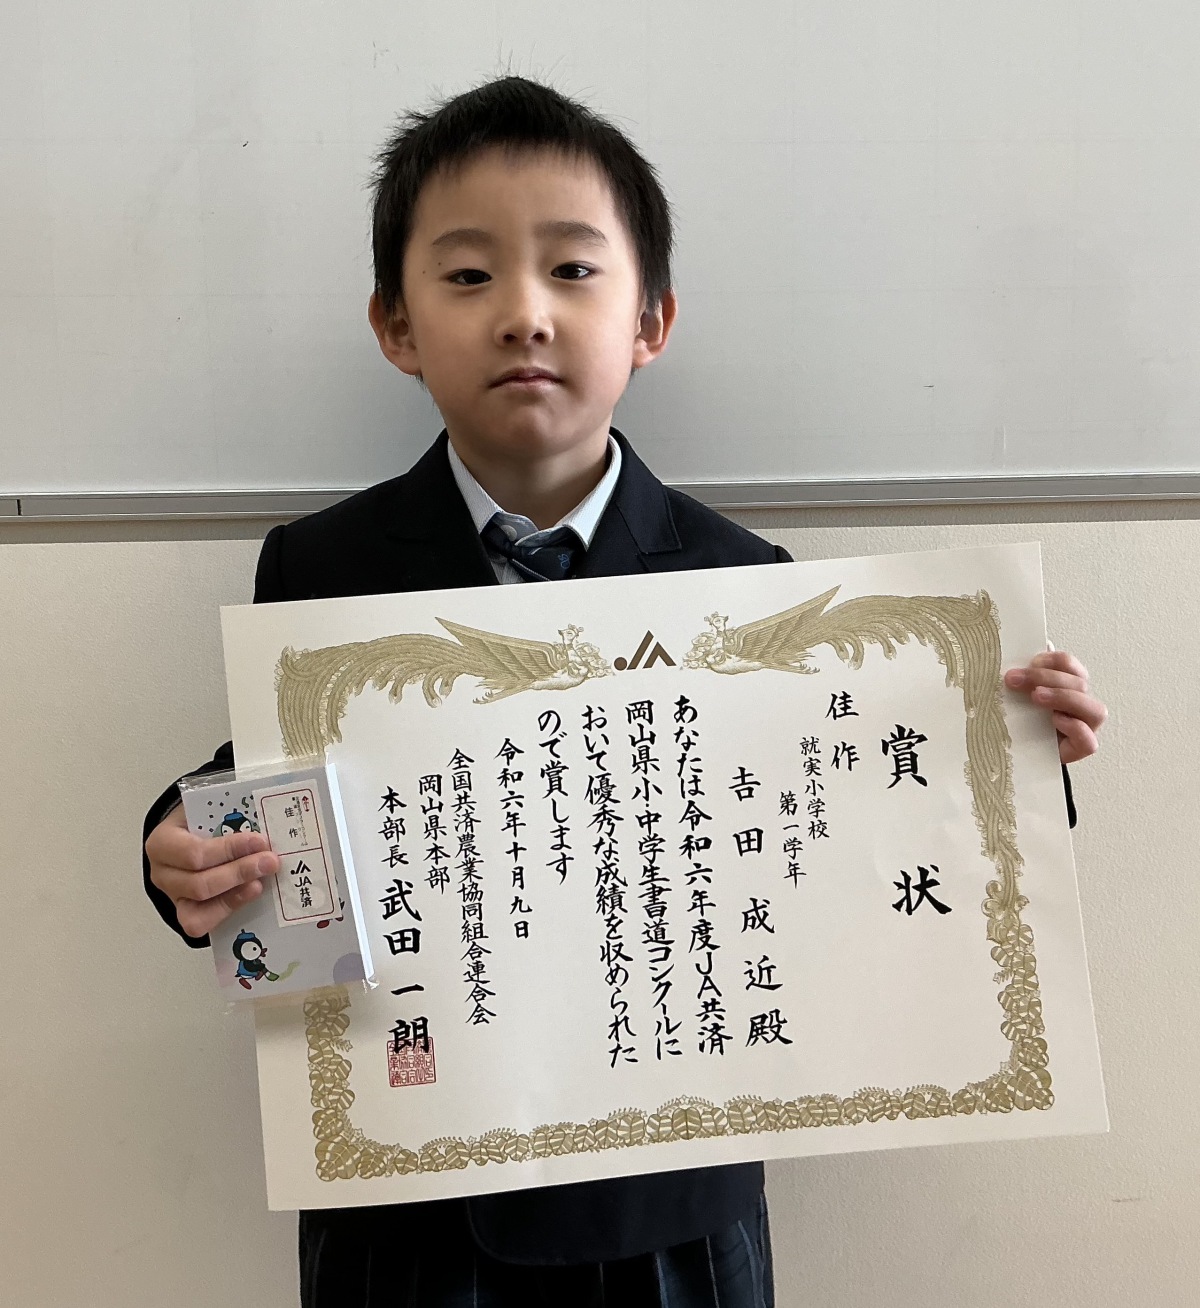 賞状
佳作
就実小学校
第一学年
吉田成近殿
あなたは令和六年度JA共済
岡山県小・中学生書道コンクールに
おいて優秀な成績を収められた
ので賞します
令和六年十月九日
全国共済農業協同組合連合会
岡山県本部
本部長 武田一朗
JA
佳作
JA共済